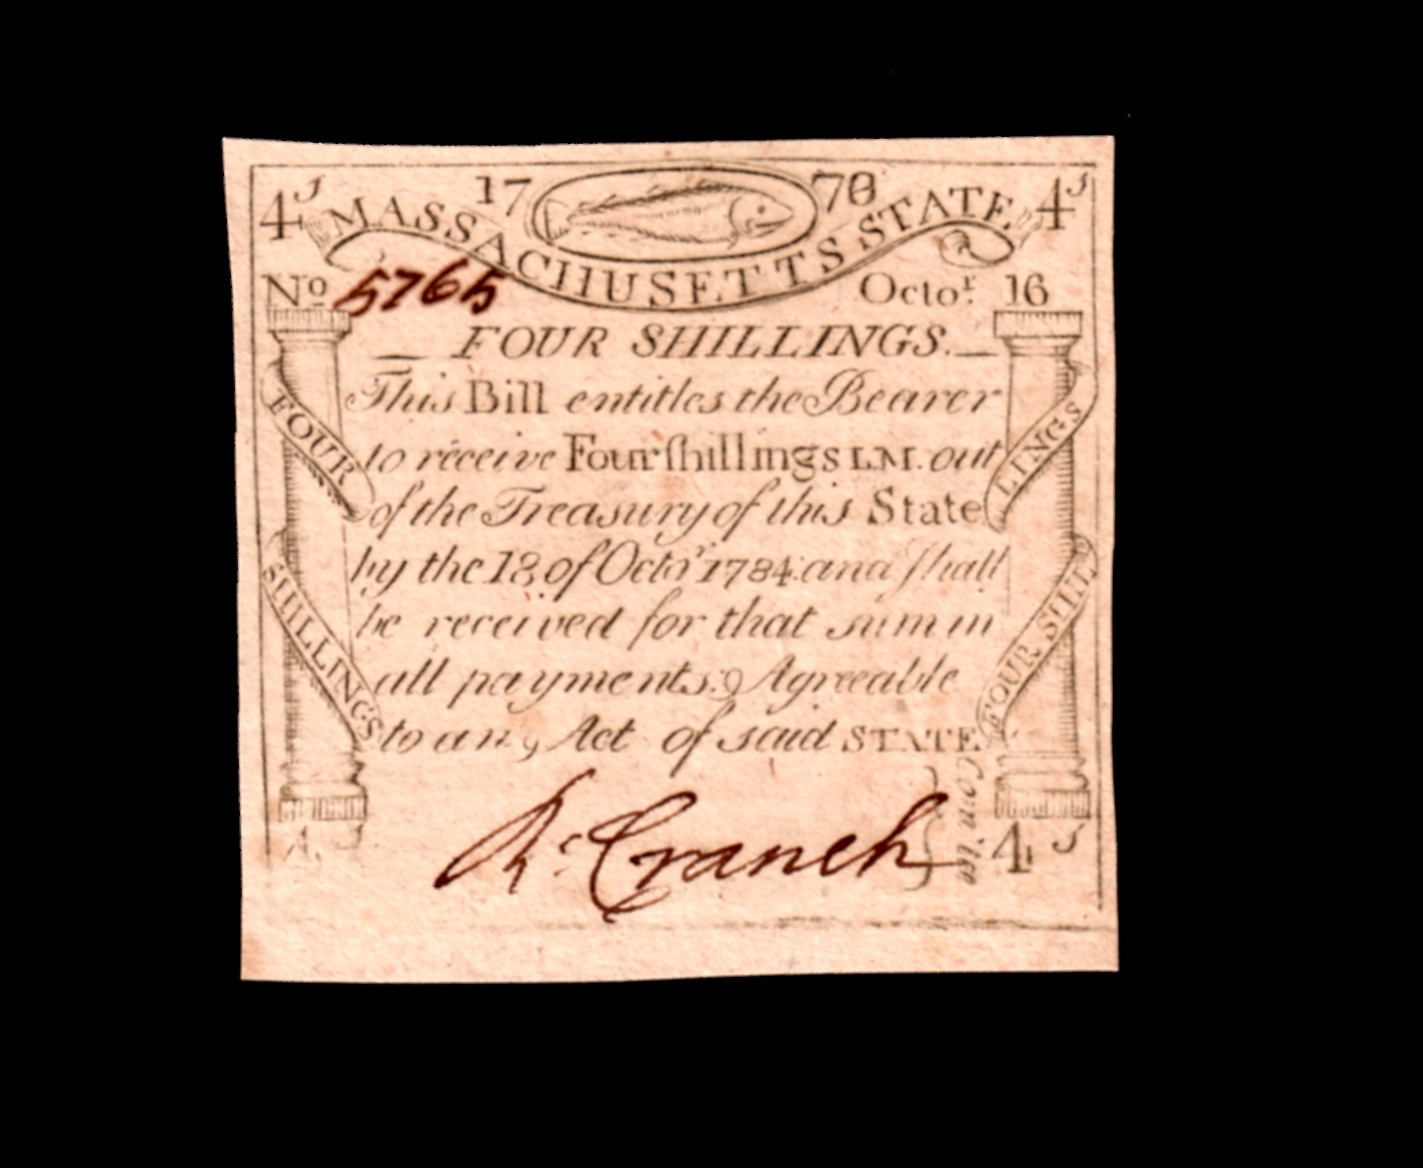 4s 17 78 4s
MASSACHUSETTS STATE
No 5765 Octor. 16
FOUR SHILLINGS.
This Bill entitles the Bearer
to receive Four ſhillings L.M. out
of the Treasury of this State
by the 18 of Octor 1784 and ſhall
be received for that sum in
all payments: Agreeable
to an Act of said STATE
FOUR
SHILLINGS
LINGS
FOUR SHIL
Rd Cranch
Com'tee
4s